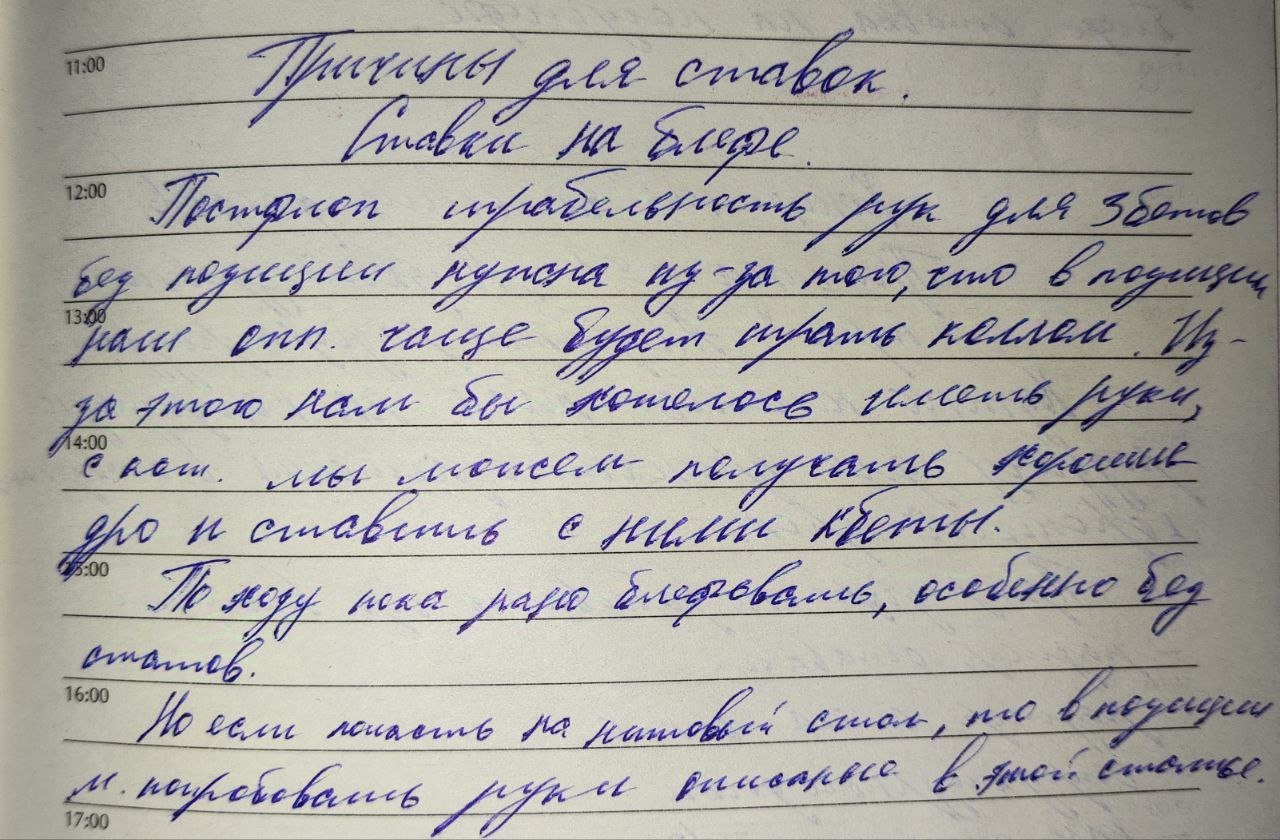 11:00
Причины для ставок.
Ставки на блефе.
12:00
Постфлоп играбельность рук для 3бетов
без позиции нужна из-за того, что в позиции
13:00
наш опп. чаще будет играть коллом. Из-
за этого нам бы хотелось иметь руки,
14:00
с кот. мы можем получать хорошие
дро и ставить с ними кбеты.
15:00
По ходу пока рано блефовать, особенно без
статов.
16:00
Но если попасть на нитовый стол, то в позиции
м. попробовать руки описаные в этой статье.
17:00